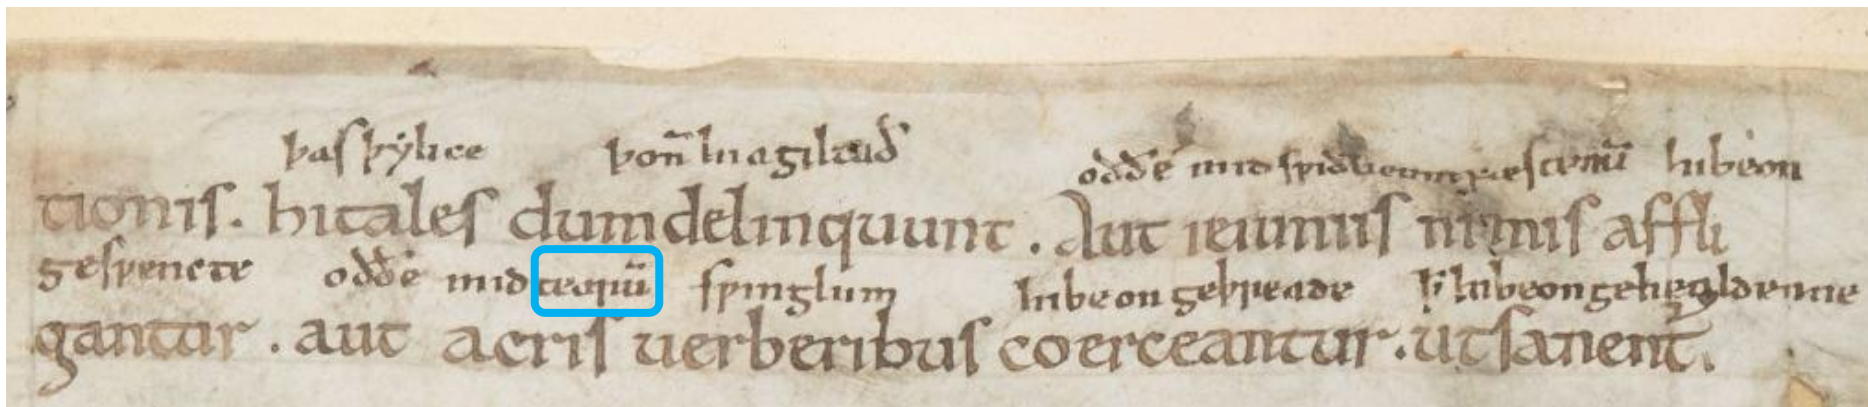 þas þẏlice þon̄ hi agiltað oððe mid fæstenū hi beon
tionis. hi tales dum delinquunt. Aut ieiuniis nimis affli
geſƿencte oððe mid ſƿinglum hi beon geþreade þ̄ hi beon
gantur. aut acris uerberibus coerceantur. ut sanent̄.